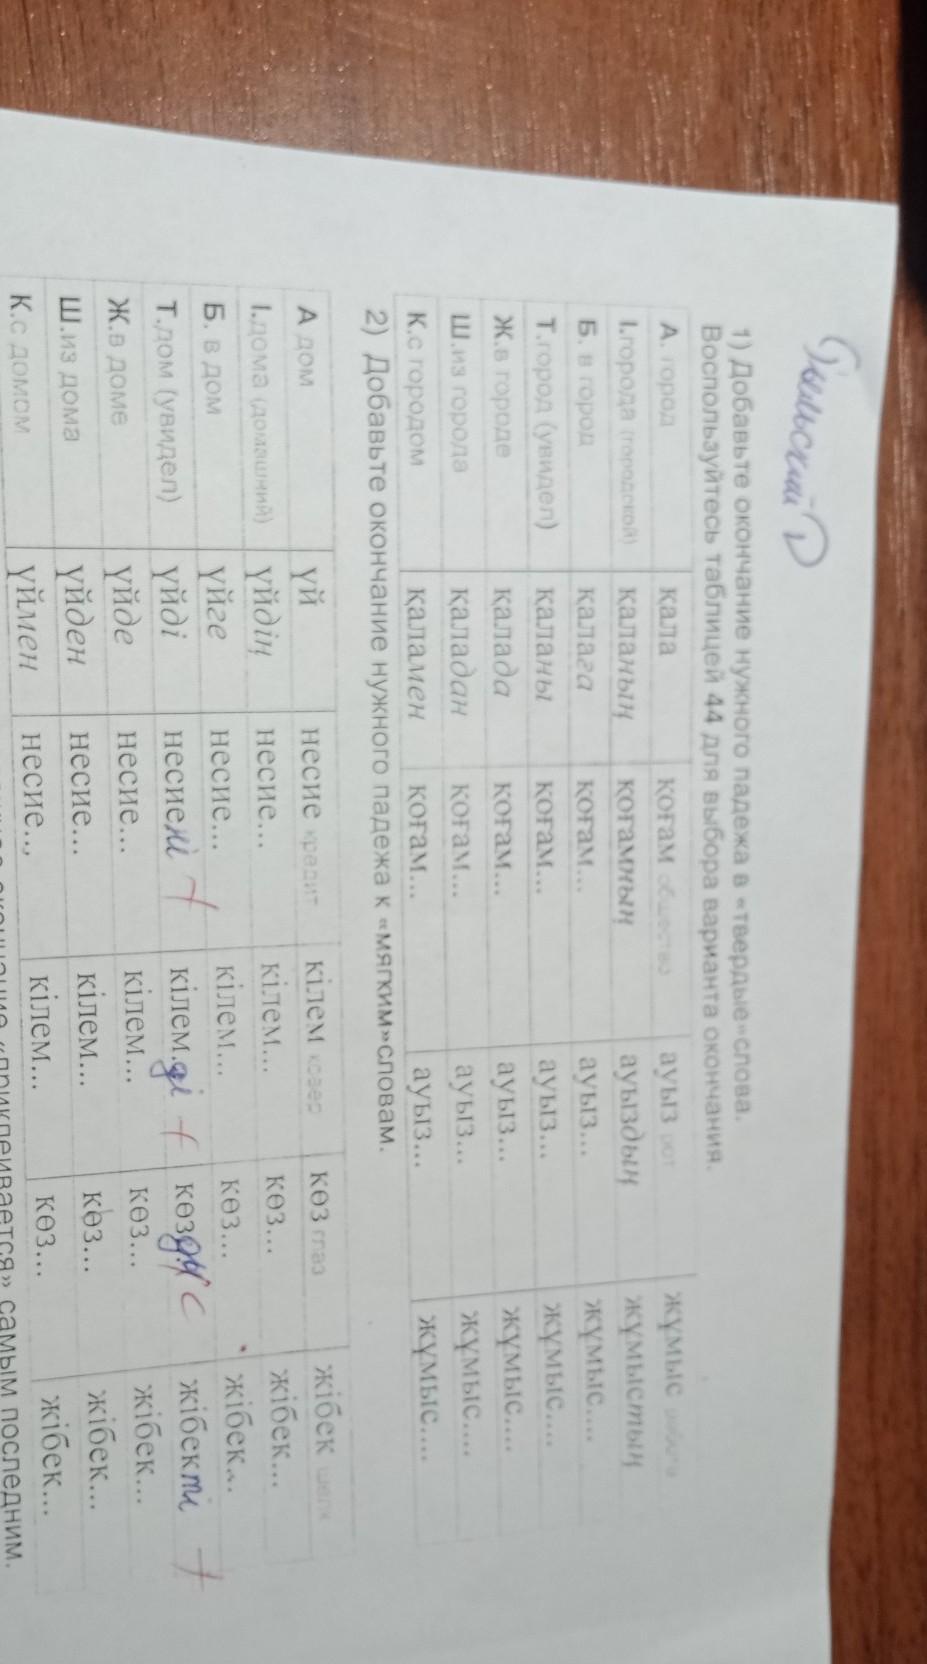 1) Добавьте окончание нужного падежа в «твердые»слова.
Воспользуйтесь таблицей 44 для выбора варианта окончания.
А. город қала қоғам общество ауыз рот жұмыс работа
І.города (городской) қаланың қоғамның ауыздың жұмыстың
Б. в город қалаға қоғам... ауыз... жұмыс....
Т.город (увидел) қаланы қоғам... ауыз... жұмыс....
Ж.в городе қалада қоғам... ауыз... жұмыс....
Ш.из города қаладан қоғам... ауыз... жұмыс....
К.с городом қаламен қоғам... ауыз... жұмыс....
2) Добавьте окончание нужного падежа к «мягким»словам.
А дом үй несие кредит кілем ковер көз глаз жібек шелк
І.дома (домашний) үйдің несие... кілем... көз... жібек...
Б. в дом үйге несие... кілем... көз... жібек...
Т.дом (увидел) үйді несиені + кілем.ді + көзді с жібекті +
Ж.в доме үйде несие... кілем... көз... жібек...
Ш.из дома үйден несие... кілем... көз... жібек...
К.с домом үймен несие... кілем... көз... жібек...
окончание «приклеивается» самым последним.